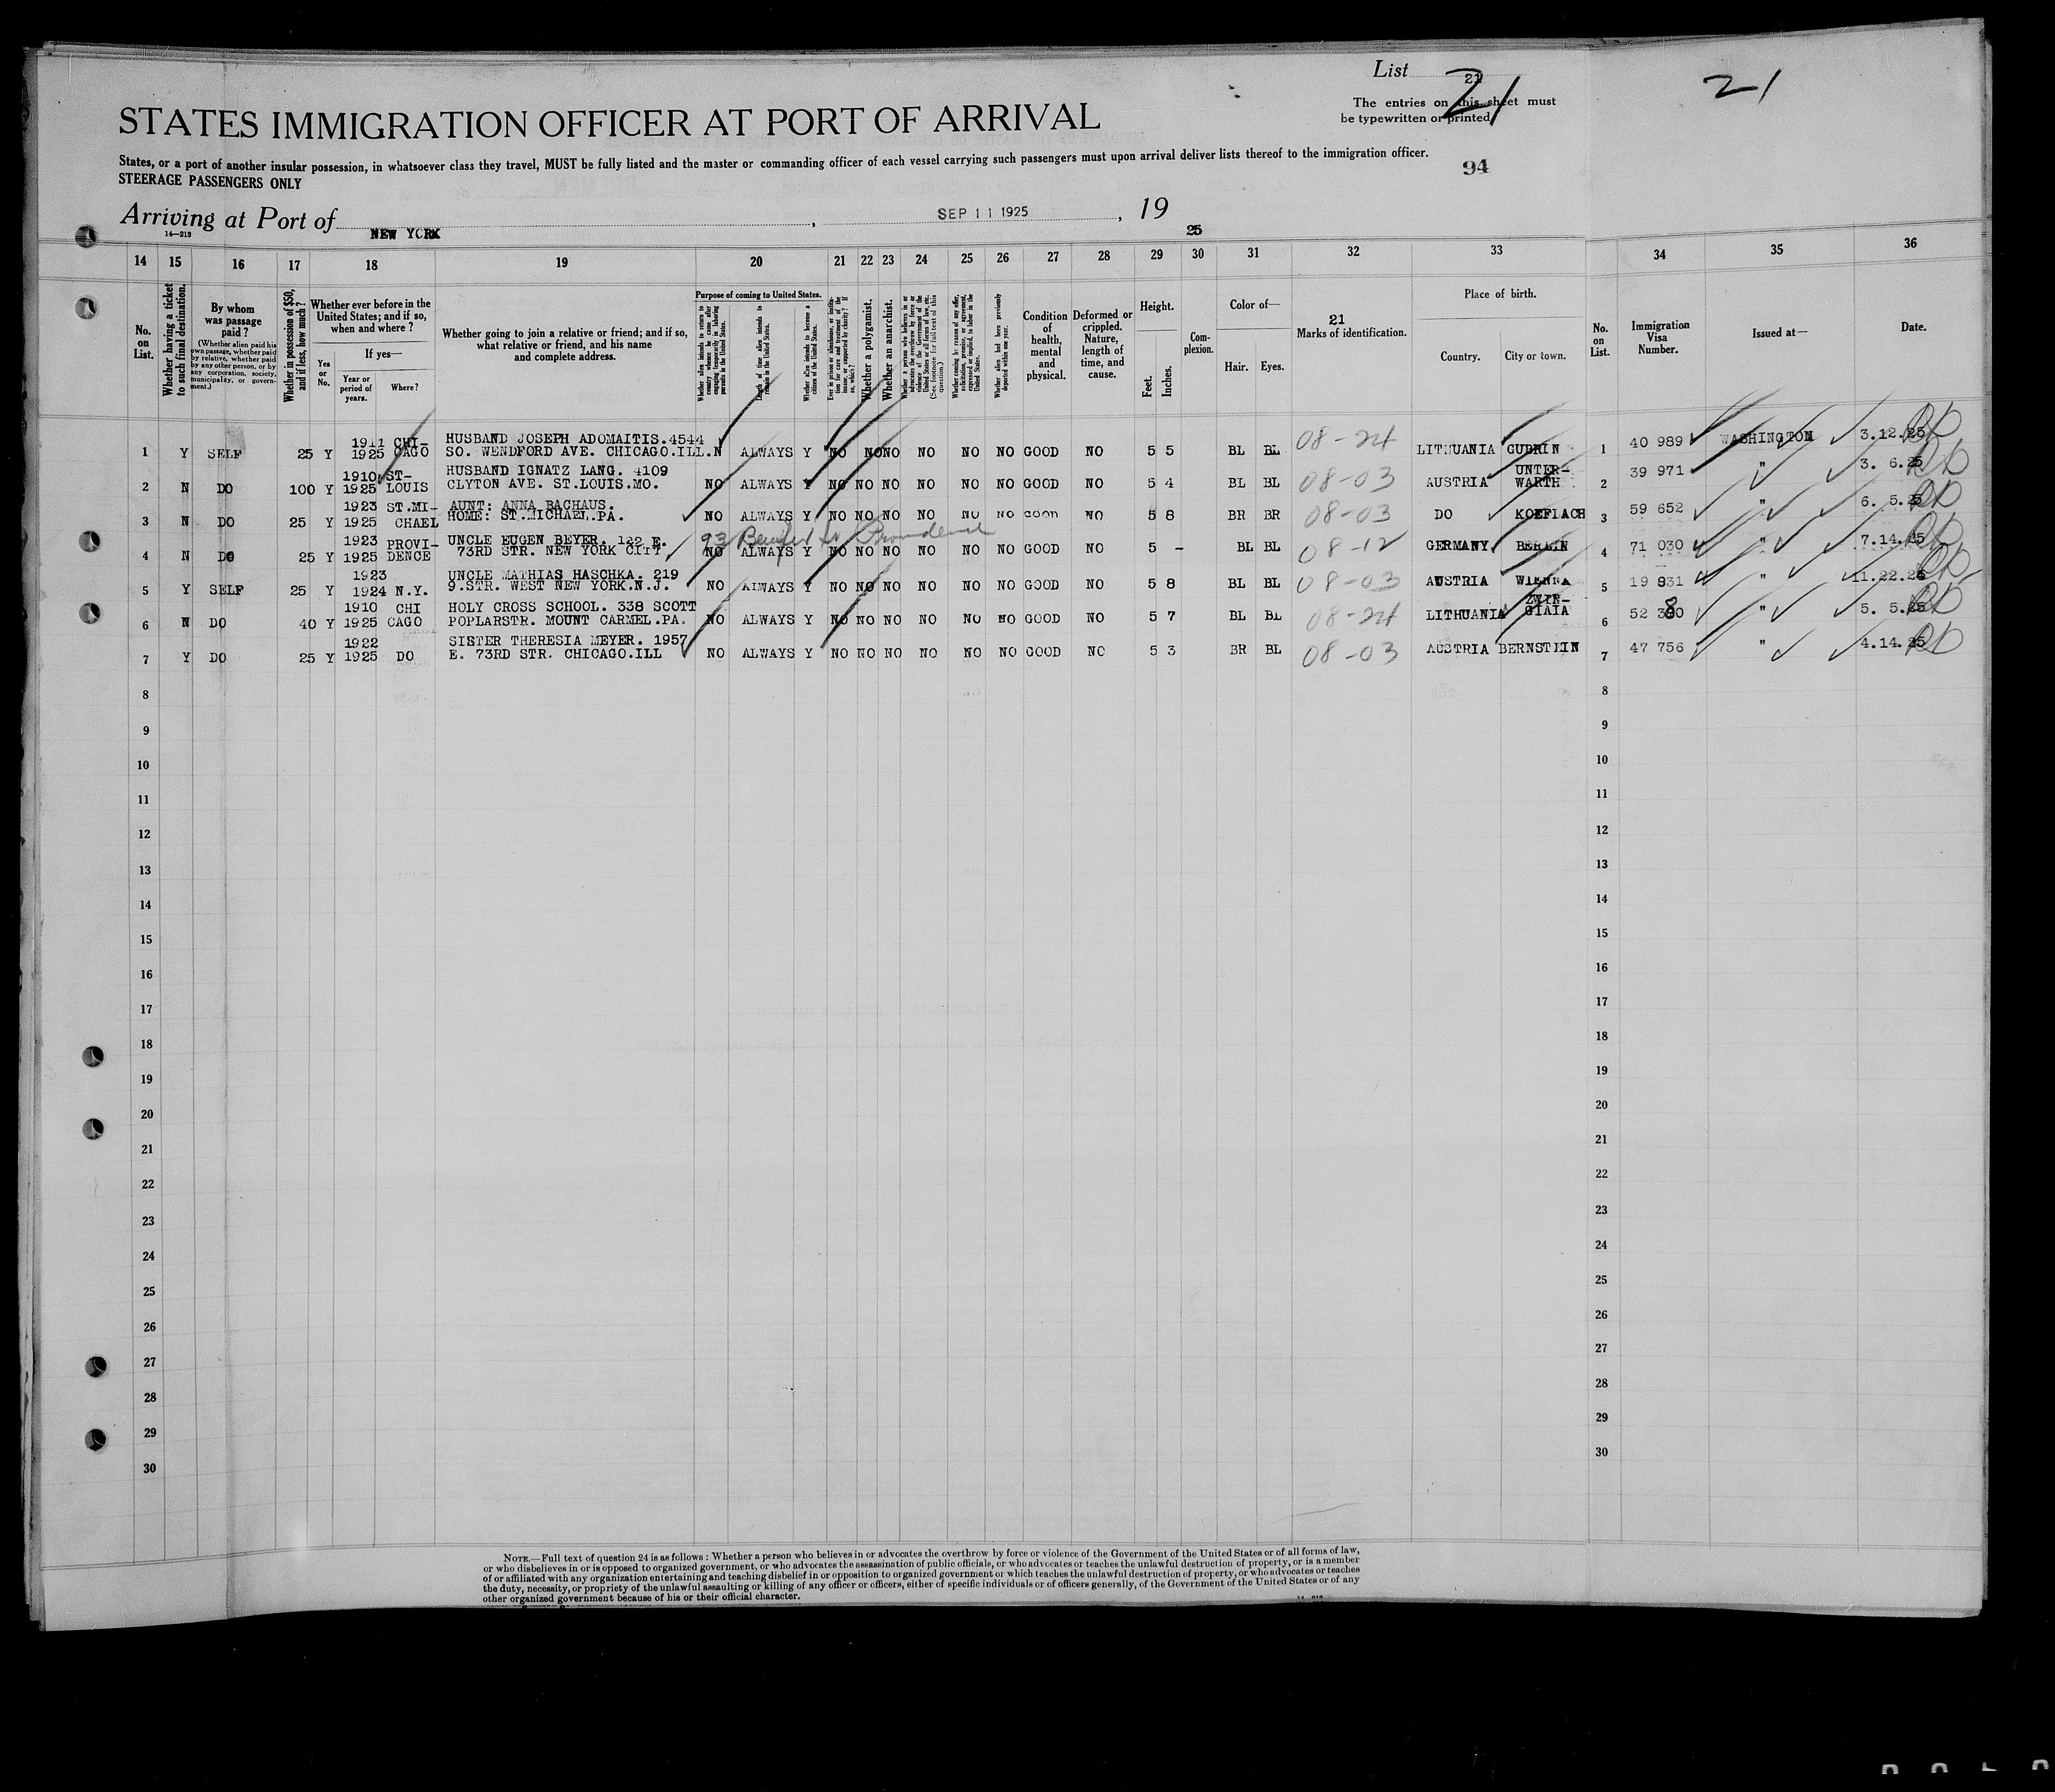 List 21
21
21
The entries on this sheet must
be typewritten or printed
STATES IMMIGRATION OFFICER AT PORT OF ARRIVAL
States, or a port of another insular possession, in whatsoever class they travel, MUST be fully listed and the master or commanding officer of each vessel carrying such passengers must upon arrival deliver lists thereof to the immigration officer.
STEERAGE PASSENGERS ONLY
94
Arriving at Port of NEW YORK, SEP 11 1925, 19 25
14—213
14 15 16 17 18 19 20 21 22 23 24 25 26 27 28 29 30 31 32 33 34 35 36
No. on List.
Whether having a ticket to such final destination.
By whom was passage paid?
(Whether alien paid his own passage, whether paid by relative, whether paid by any other person, or by any corporation, society, municipality, or government.)
Whether in possession of $50, and if less, how much?
Whether ever before in the United States; and if so, when and where?
Yes or No.
If yes—
Year or period of years.
Where?
Whether going to join a relative or friend; and if so, what relative or friend, and his name and complete address.
Purpose of coming to United States.
Whether alien intends to return to country whence he came after engaging temporarily in laboring pursuits in the United States.
Length of time alien intends to remain in the United States.
Whether alien intends to become a citizen of the United States.
Ever in prison or almshouse, or institution for care and treatment of the insane, or supported by charity? If so, which?
Whether a polygamist.
Whether an anarchist.
Whether a person who believes in or advocates the overthrow by force or violence of the Government of the United States or all forms of law, etc. (See footnote for full text of this question.)
Whether coming by reason of any offer, solicitation, promise, or agreement, expressed or implied, to labor in the United States.
Whether alien had been previously deported within one year.
Condition of health, mental and physical.
Deformed or crippled. Nature, length of time, and cause.
Height.
Feet. Inches.
Complexion.
Color of—
Hair. Eyes.
21
Marks of identification.
Place of birth.
Country. City or town.
No. on List.
Immigration Visa Number.
Issued at—
Date.
1 Y SELF 25 Y 1911 1925 CHI-CAGO HUSBAND JOSEPH ADOMAITIS.4544 SO. WENDFORD AVE. CHICAGO.ILL. N ALWAYS Y NO NO NO NO NO NO GOOD NO 5 5 BL BL 08-24 LITHUANIA GUDRIN 1 40 989 WASHINGTON 3.12.25
2 N DO 100 Y 1910 1925 ST-LOUIS HUSBAND IGNATZ LANG. 4109 CLYTON AVE. ST.LOUIS.MO. NO ALWAYS Y NO NO NO NO NO NO GOOD NO 5 4 BL BL 08-03 AUSTRIA UNTER-WARTH 2 39 971 " 3. 6.25
3 N DO 25 Y 1923 1925 ST.MI-CHAEL AUNT: ANNA BACHAUS. HOME: ST.MICHAEL.PA. NO ALWAYS Y NO NO NO NO NO NO GOOD NO 5 8 BR BR 08-03 DO KOEFLACH 3 59 652 " 6. 5.25
4 N DO 25 Y 1923 1925 PROVI-DENCE UNCLE EUGEN BEYER. 122 E. 73RD STR. NEW YORK CITY. 93 Providence NO ALWAYS Y NO NO NO NO NO NO GOOD NO 5 - BL BL 08-12 GERMANY BERLIN 4 71 030 " 7.14.25
5 Y SELF 25 Y 1923 1924 N.Y. UNCLE MATHIAS HASCHKA. 219 9.STR. WEST NEW YORK.N.J. NO ALWAYS Y NO NO NO NO NO NO GOOD NO 5 8 BL BL 08-03 AUSTRIA WIENNA 5 19 831 " 11.22.2
6 N DO 40 Y 1910 1925 CHI CAGO HOLY CROSS SCHOOL. 338 SCOTT POPLARSTR. MOUNT CARMEL.PA. NO ALWAYS Y NO NO NO NO NO NO GOOD NO 5 7 BL BL 08-24 LITHUANIA GIAIA 6 52 380 " 5. 5.25
7 Y DO 25 Y 1922 1925 DO SISTER THERESIA MEYER. 1957 E. 73RD STR. CHICAGO.ILL NO ALWAYS Y NO NO NO NO NO NO GOOD NO 5 3 BR BL 08-03 AUSTRIA BERNSTEIN 7 47 756 " 4.14.25
8 8
9 9
10 10
11 11
12 12
13 13
14 14
15 15
16 16
17 17
18 18
19 19
20 20
21 21
22 22
23 23
24 24
25 25
26 26
27 27
28 28
29 29
30 30
NOTE.—Full text of question 24 is as follows: Whether a person who believes in or advocates the overthrow by force or violence of the Government of the United States or of all forms of law,
or who disbelieves in or is opposed to organized government, or who advocates the assassination of public officials, or who advocates or teaches the unlawful destruction of property, or is a member
of or affiliated with any organization entertaining and teaching disbelief in or opposition to organized government or which teaches the unlawful destruction of property, or who advocates or teaches
the duty, necessity, or propriety of the unlawful assaulting or killing of any officer or officers, either of specific individuals or of officers generally, of the Government of the United States or of any
other organized government because of his or their official character.